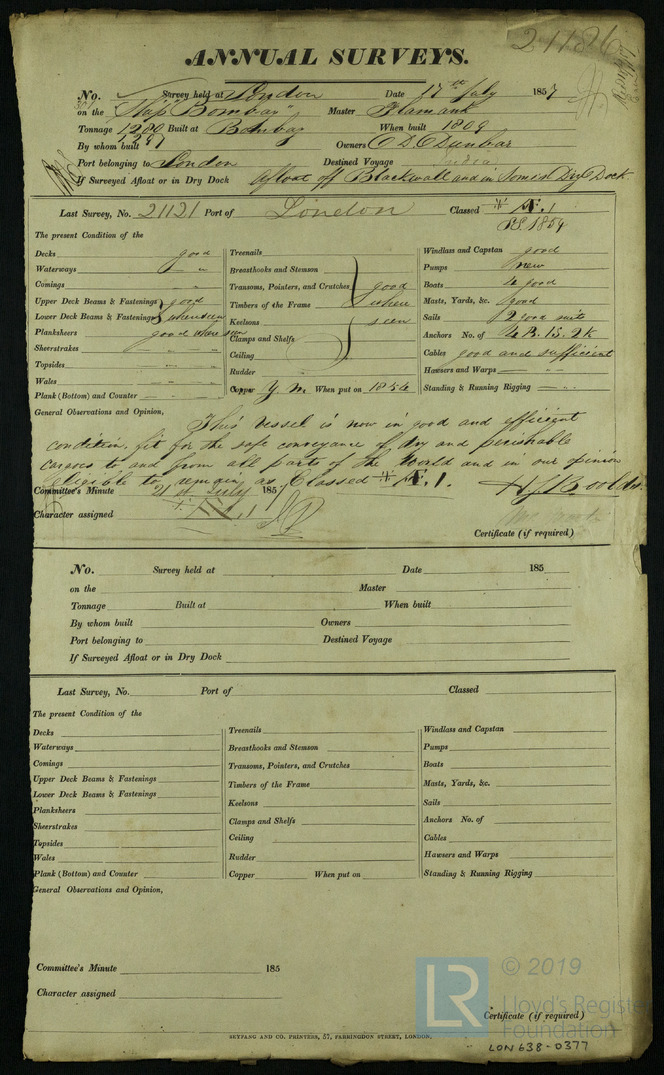 21186
ANNUAL SURVEYS.
No. Survey held at London Date 17th July 1857
on the Ship "Bombay" Master Flamank
Tonnage 1280 Built at Bombay When built 1809
1297
By whom built Owners D. Dunbar
Port belonging to London Destined Voyage India
If Surveyed Afloat or in Dry Dock Afloat off Blackwall and in Dry Dock
Last Survey, No. 21121 Port of London Classed Æ.1
1854
The present Condition of the
Decks good
Waterways "
Comings "
Upper Deck Beams & Fastenings good
Lower Deck Beams & Fastenings where seen
Planksheers good where seen
Sheerstrakes
Topsides
Wales
Plank (Bottom) and Counter
Treenails
Breasthooks and Stemson
Transoms, Pointers, and Crutches good
Timbers of the Frame where
Keelsons seen
Clamps and Shelfs
Ceiling
Rudder
Copper Y. M. When put on 1856
Windlass and Capstan good
Pumps new
Boats 4 good
Masts, Yards, &c. good
Sails 2 good suits
Anchors No. of 4 B. 1 S. 2 K
Cables good and sufficient
Hawsers and Warps
Standing & Running Rigging
General Observations and Opinion,
This vessel is now in good and efficient
condition, fit for the safe conveyance of dry and perishable
cargoes to and from all parts of the World and in our opinion
eligible to remain as Classed Æ.1.
Committee's Minute 21st July 1857
Character assigned Æ.1
Certificate (if required)
No. Survey held at Date 185
on the Master
Tonnage Built at When built
By whom built Owners
Port belonging to Destined Voyage
If Surveyed Afloat or in Dry Dock
Last Survey, No. Port of Classed
The present Condition of the
Decks
Waterways
Comings
Upper Deck Beams & Fastenings
Lower Deck Beams & Fastenings
Planksheers
Sheerstrakes
Topsides
Wales
Plank (Bottom) and Counter
Treenails
Breasthooks and Stemson
Transoms, Pointers, and Crutches
Timbers of the Frame
Keelsons
Clamps and Shelfs
Ceiling
Rudder
Copper When put on
Windlass and Capstan
Pumps
Boats
Masts, Yards, &c.
Sails
Anchors No. of
Cables
Hawsers and Warps
Standing & Running Rigging
General Observations and Opinion,
Committee's Minute 185
Character assigned
Certificate (if required)
SEYFANG AND CO. PRINTERS, 57, FARRINGDON STREET, LONDON.
LR © 2019
Lloyd's Register
Foundation
LON 638-0377